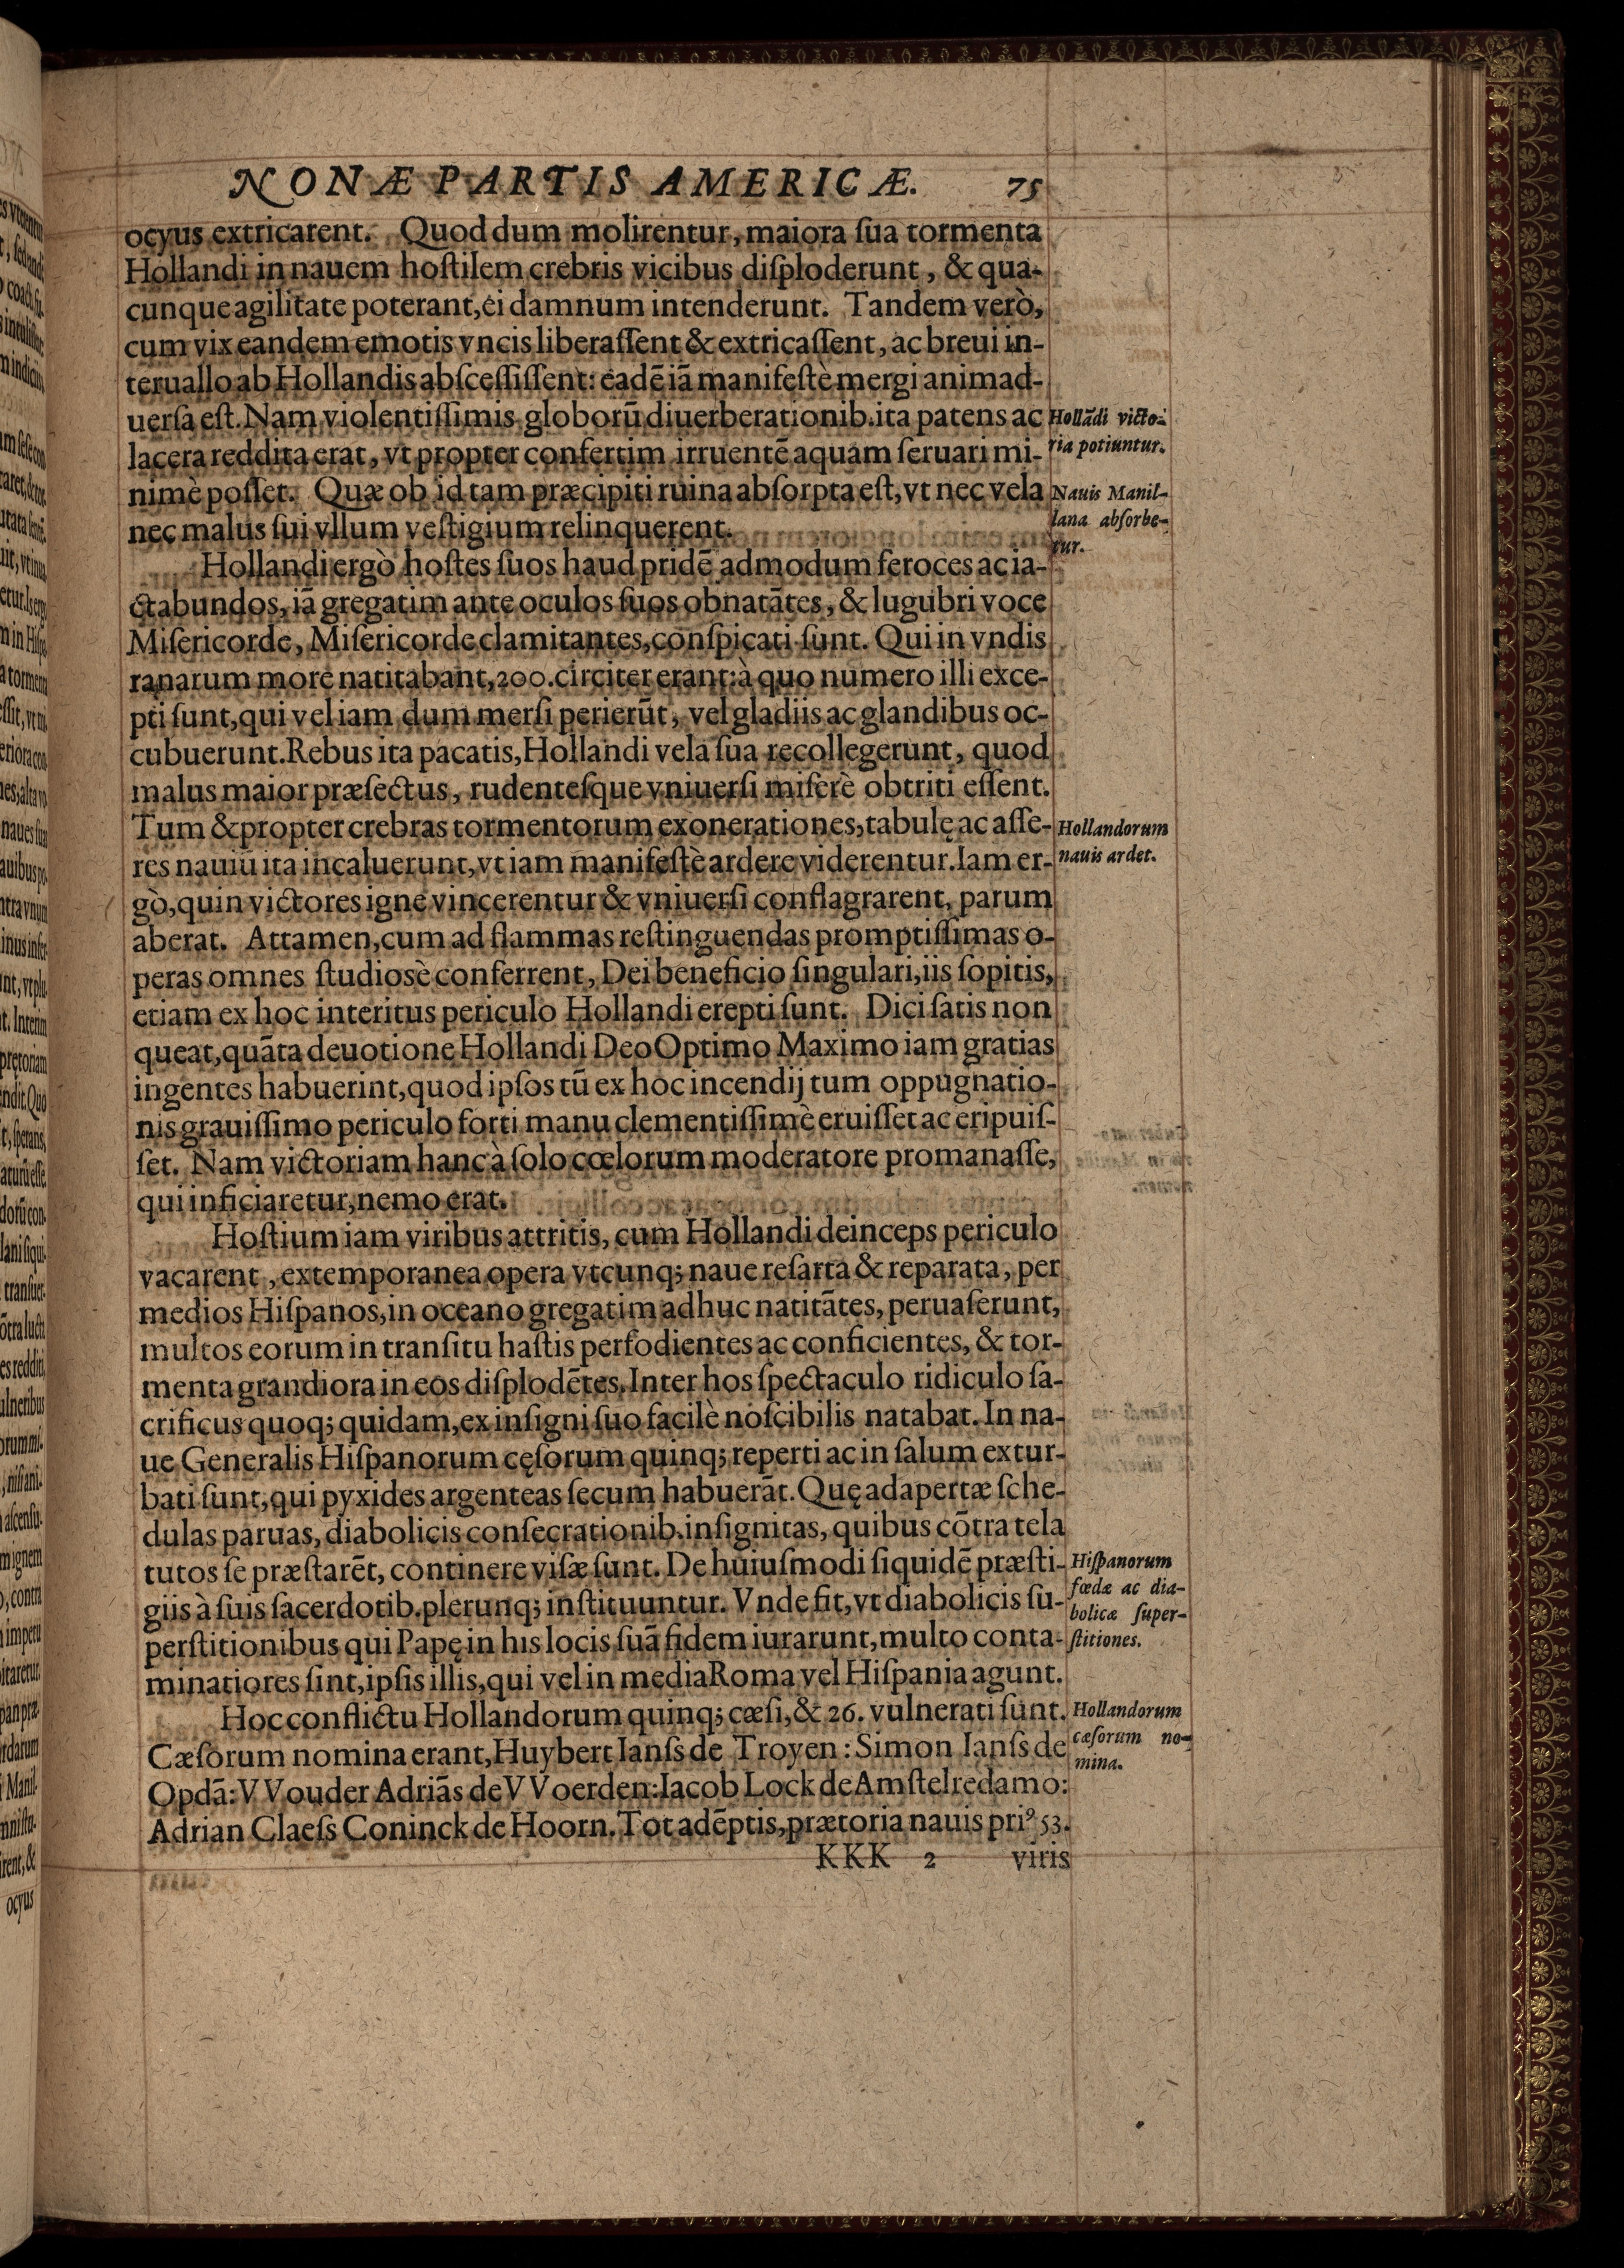 NONÆ PARTIS AMERICÆ. 75
ocyus extricarent. Quod dum molirentur, maiora ſua tormenta
Hollandi in nauem hoſtilem crebris vicibus diſploderunt, & qua-
cunque agilitate poterant, ei damnum intenderunt. Tandem verò,
cum vix eandem emotis vncis liberaſſent & extricaſſent, ac breui in-
teruallo ab Hollandis abſceſſiſſent: eadē iā manifeſtè mergi animad-
uerſa eſt. Nam violentiſſimis globorū diuerberationib. ita patens ac
lacera reddita erat, vt propter confertim irruentē aquam ſeruari mi-
nimè poſſet. Quæ ob id tam præcipiti ruina abſorpta eſt, vt nec vela
nec malus ſui vllum veſtigium relinquerent.
Hollãdi victo-
ria potiuntur.
Nauis Manil-
lana abſorbe-
tur.
Hollandi ergò hoſtes ſuos haud pridē admodum feroces ac ia-
ctabundos, iā gregatim ante oculos ſuos obnatātes, & lugubri voce
Miſericorde, Miſericorde clamitantes, conſpicati ſunt. Qui in vndis
ranarum more natitabant, 200. circiter erant: à quo numero illi exce-
pti ſunt, qui vel iam dum merſi perierūt, vel gladiis ac glandibus oc-
cubuerunt. Rebus ita pacatis, Hollandi vela ſua recollegerunt, quod
malus maior præſectus, rudenteſque vniuerſi miſerè obtriti eſſent.
Tum & propter crebras tormentorum exonerationes, tabulę ac aſſe-
res nauiū ita incaluerunt, vt iam manifeſtè ardere viderentur. Iam er-
gò, quin victores igne vincerentur & vniuerſi conflagrarent, parum
aberat. Attamen, cum ad flammas reſtinguendas promptiſſimas o-
peras omnes ſtudiosè conferrent, Dei beneficio ſingulari, iis ſopitis,
etiam ex hoc interitus periculo Hollandi erepti ſunt. Dici ſatis non
queat, quāta deuotione Hollandi Deo Optimo Maximo iam gratias
ingentes habuerint, quod ipſos tū ex hoc incendij tum oppugnatio-
nis grauiſſimo periculo forti manu clementiſſimè eruiſſet ac eripuiſ-
ſet. Nam victoriam hanc à ſolo cœlorum moderatore promanaſſe,
qui inficiaretur, nemo erat.
Hollandorum
nauis ardet.
Hoſtium iam viribus attritis, cum Hollandi deinceps periculo
vacarent, extemporanea opera vtcunq; naue reſarta & reparata, per
medios Hiſpanos, in oceano gregatim adhuc natitātes, peruaſerunt,
multos eorum in tranſitu haſtis perfodientes ac conficientes, & tor-
menta grandiora in eos diſplodētes. Inter hos ſpectaculo ridiculo ſa-
crificus quoq; quidam, ex inſigni ſuo facilè noſcibilis natabat. In na-
ue Generalis Hiſpanorum cęſorum quinq; reperti ac in ſalum extur-
bati ſunt, qui pyxides argenteas ſecum habuerāt. Quę adapertæ ſche-
dulas paruas, diabolicis conſecrationib. inſignitas, quibus cōtra tela
tutos ſe præſtarēt, continere viſæ ſunt. De huiuſmodi ſiquidē præſti-
giis à ſuis ſacerdotib. plerunq; inſtituuntur. Vnde fit, vt diabolicis ſu-
perſtitionibus qui Papę in his locis ſuā fidem iurarunt, multo conta-
minatiores ſint, ipſis illis, qui vel in media Roma vel Hiſpania agunt.
Hiſpanorum
fœdæ ac dia-
bolicæ ſuper-
ſtitiones.
Hoc conflictu Hollandorum quinq; cæſi, & 26. vulnerati ſunt.
Cæſorum nomina erant, Huybert Ianſs de Troyen: Simon Ianſs de
Opdā: VVouder Adriās de VVoerden: Iacob Lock de Amſtelredamo:
Adrian Claeſs Coninck de Hoorn. Tot adēptis, prætoria nauis priꝰ 53.
Hollandorum
cæſorum no-
mina.
KKK 2 viris